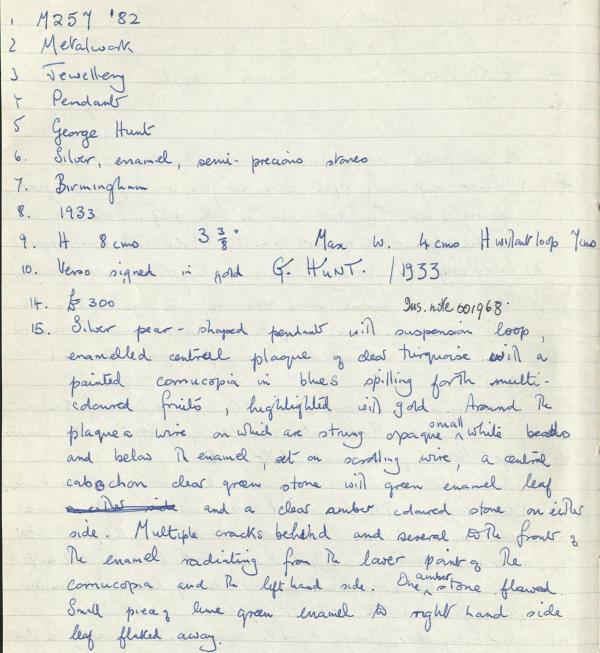 1 M257 '82
2 Metalwork
3 Jewellery
4 Pendants
5 George Hunt
6. Silver, enamel, semi-precious stones
7. Birmingham
8. 1933
9. H 8 cms 3 3/8" Max W. 4 cms H without loop 7 cms
10. Verso signed in gold G. HUNT. / 1933
14. £300 Ins. note 001968.
15. Silver pear-shaped pendant with suspension loop,
enamelled central plaque of clear turquoise with a
painted cornucopia in blues spilling forth multi-
coloured fruits, highlighted with gold. Around the
plaque a wire on which are strung opaque small white beads
and below the enamel, set on scrolling wire, a central
cabochon clear green stone with green enamel leaf
and a clear amber coloured stone on either
side. Multiple cracks behind and several to the front of
the enamel radiating from the lower point of the
cornucopia and the left hand side. One amber stone flawed.
Small piece of lime green enamel to right hand side
leaf flaked away.